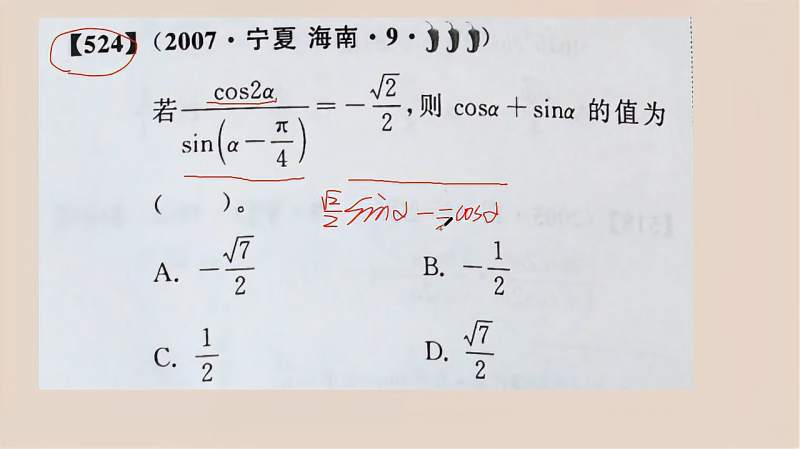 【524】(2007·宁夏 海南·9·)
若 cos2α / sin(α－π/4) ＝－√2/2，则 cosα＋sinα 的值为
( )。
√2/2 sinα － cosα
A. －√7/2 B. －1/2
C. 1/2 D. √7/2